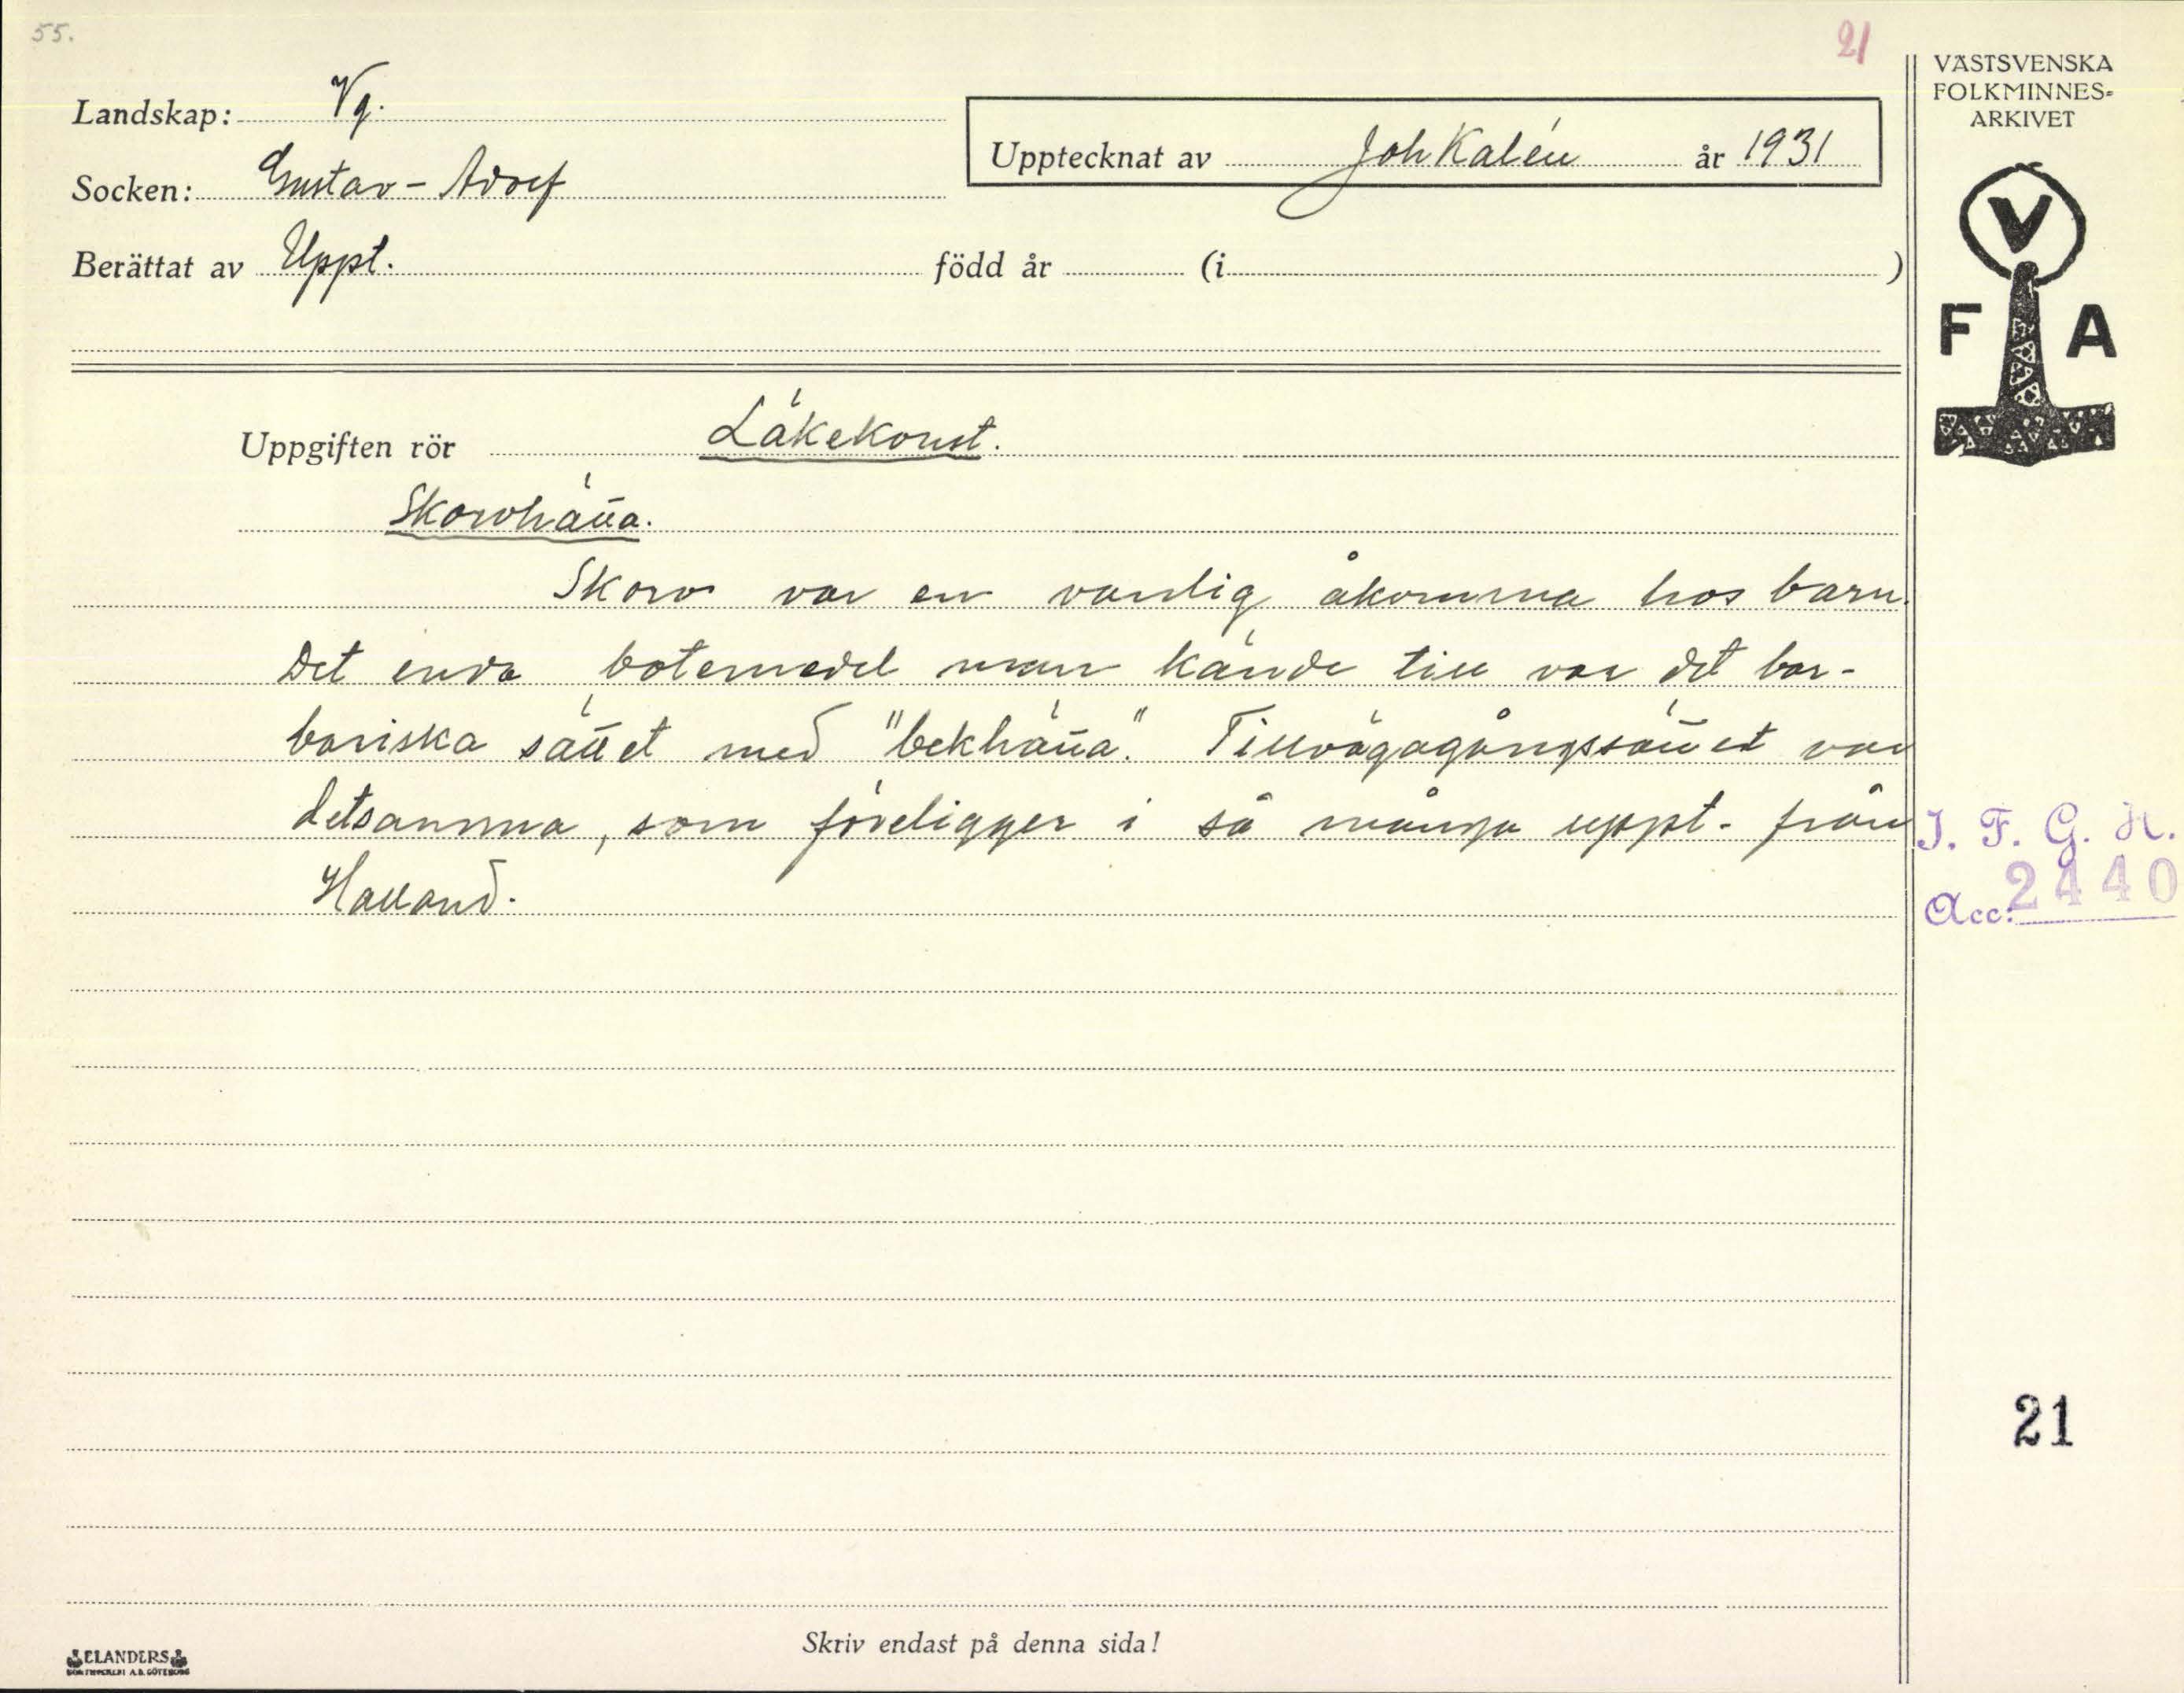 55.
21
Landskap: Vg.
Socken: Gustav-Adolf
Upptecknat av Joh Kalén år 1931
Berättat av Uppt. född år (i )
VÄSTSVENSKA
FOLKMINNES-
ARKIVET
V
F A
Uppgiften rör Läkekonst.
Skorvhätta.
Skorv var en vanlig åkomma hos barn.
Det enda botemedel man kände till var det bar-
bariska sättet med "bekhätta". Tillvägagångssättet var
detsamma, som föreligger i så många uppt. från
Halland.
I. F. G. H.
Acc: 2440
21
Skriv endast på denna sida!
ELANDERS
BOKTRYCKERI A.B. GÖTEBORG